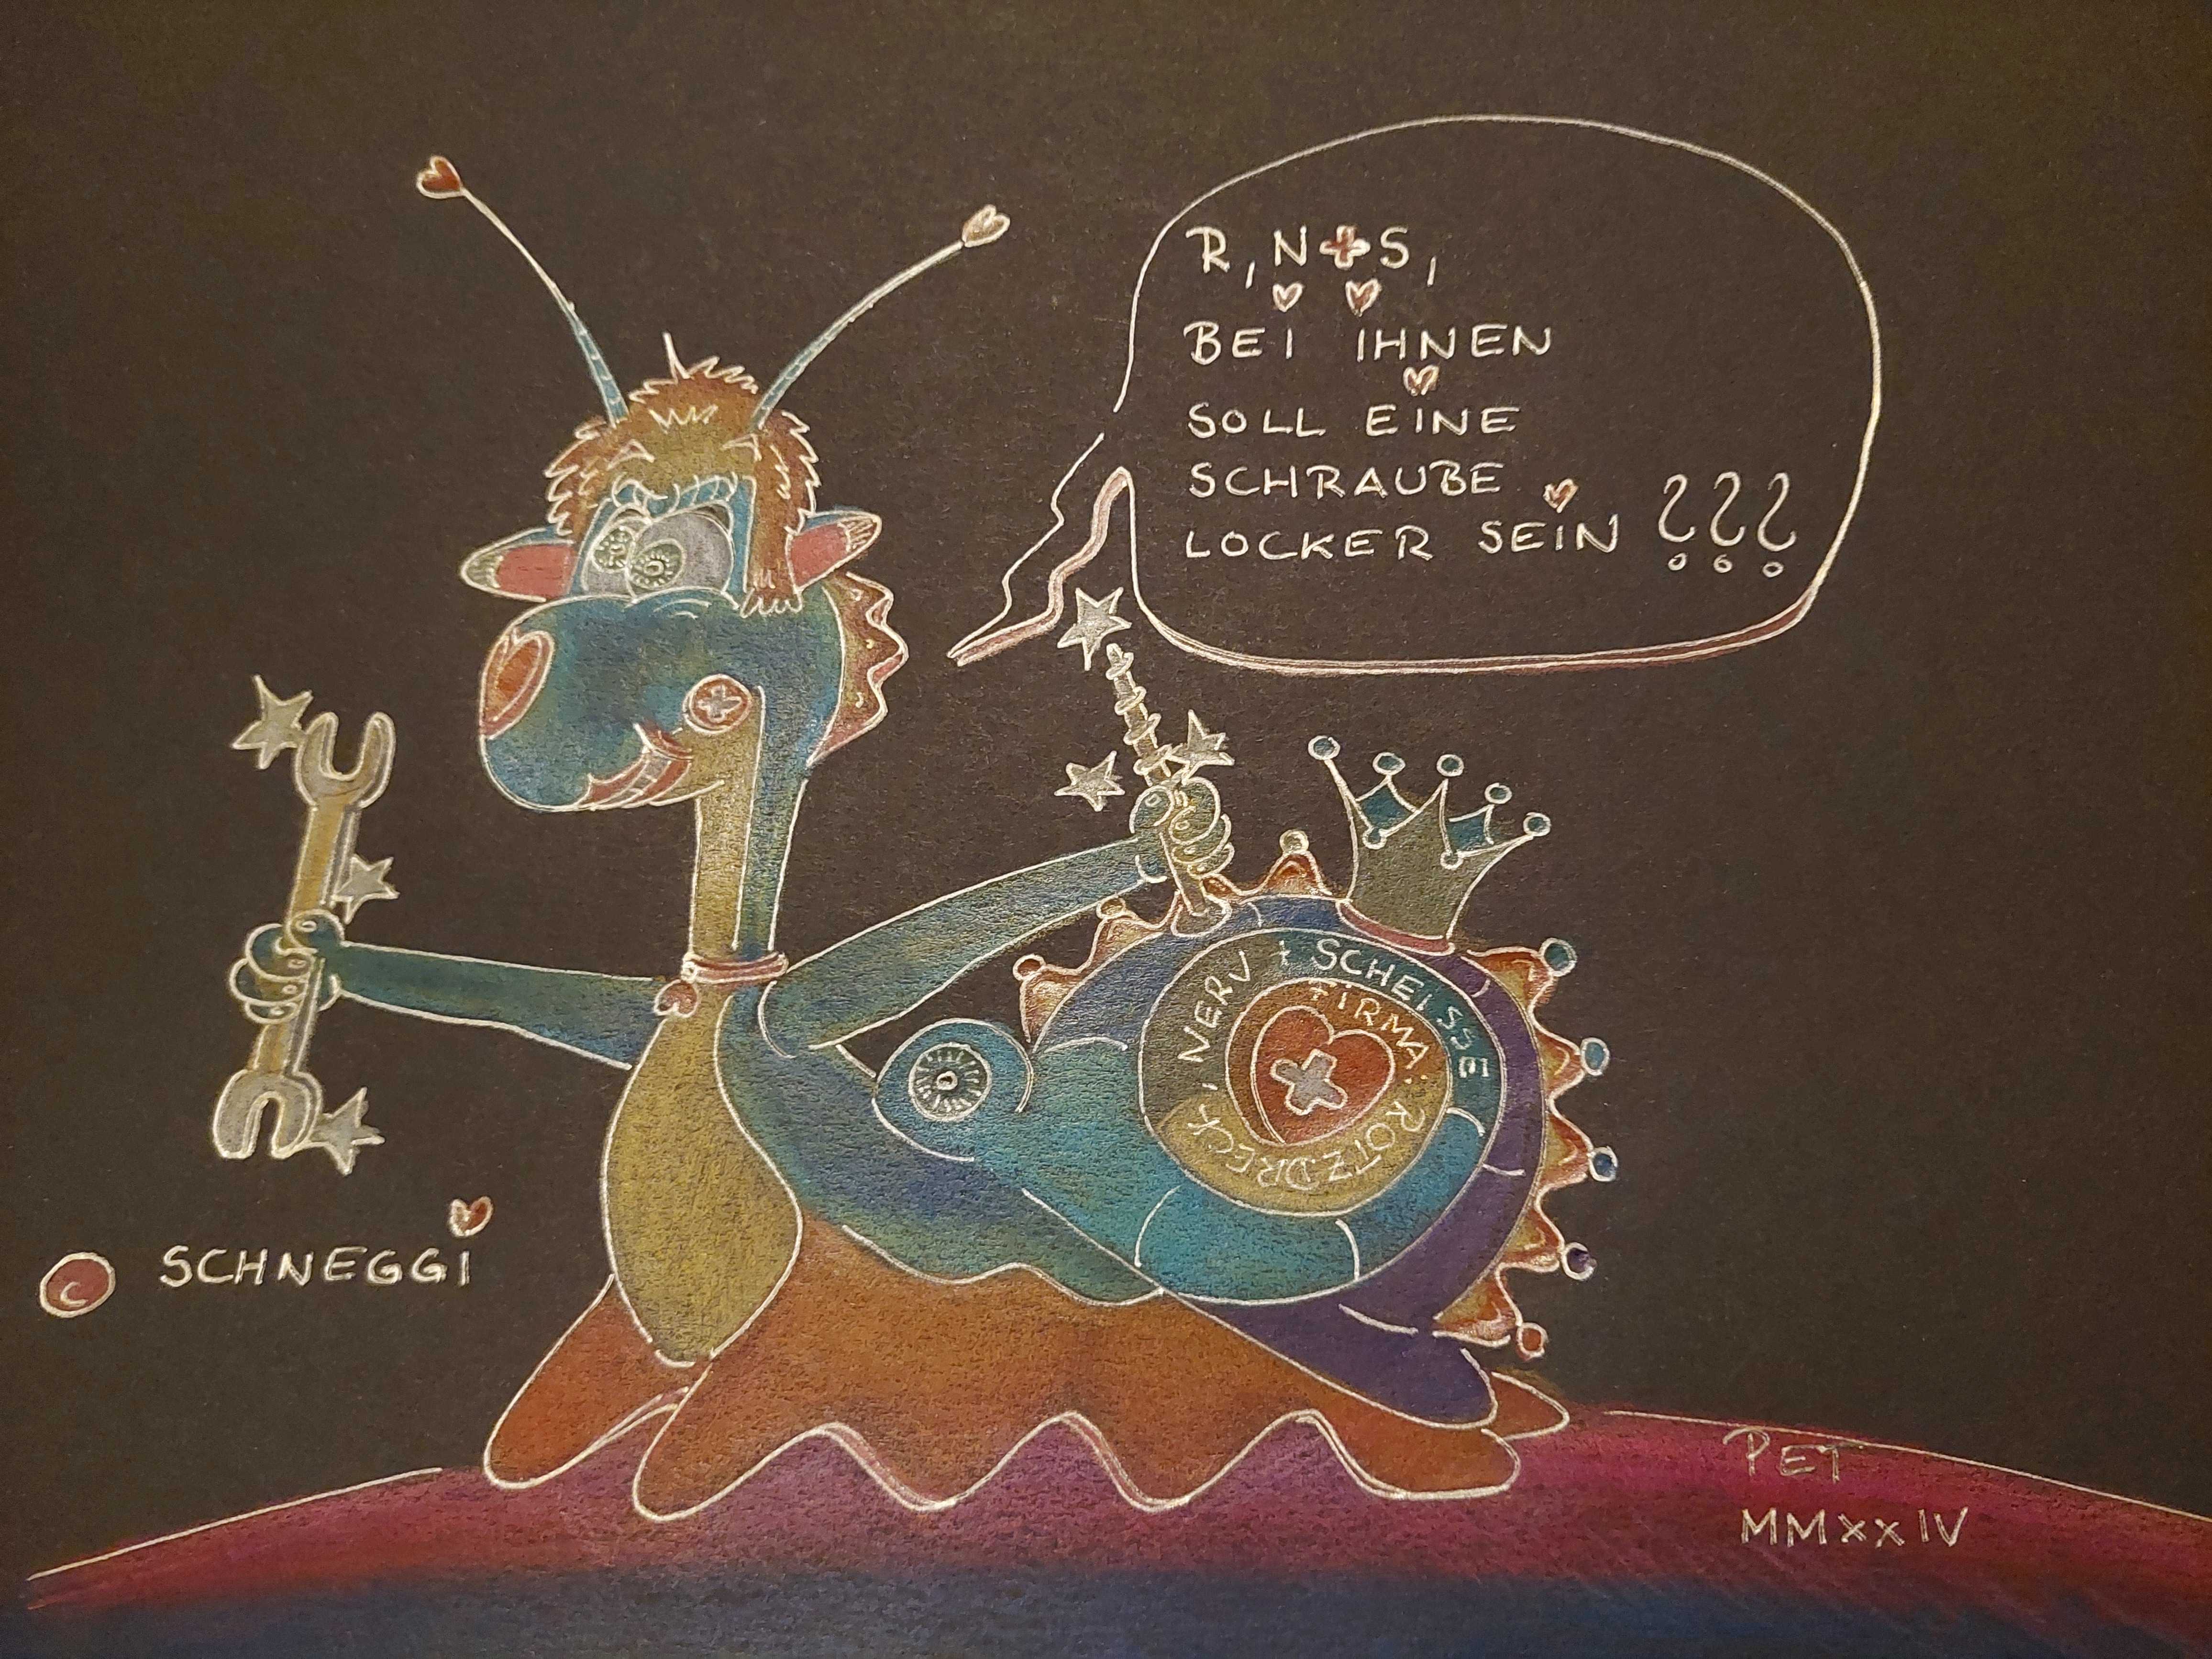 R, N+S,
BEI IHNEN
SOLL EINE
SCHRAUBE
LOCKER SEIN ???
FIRMA: ROTZ, DRECK, NERV + SCHEISSE
C SCHNEGGI
PET
MMXXIV